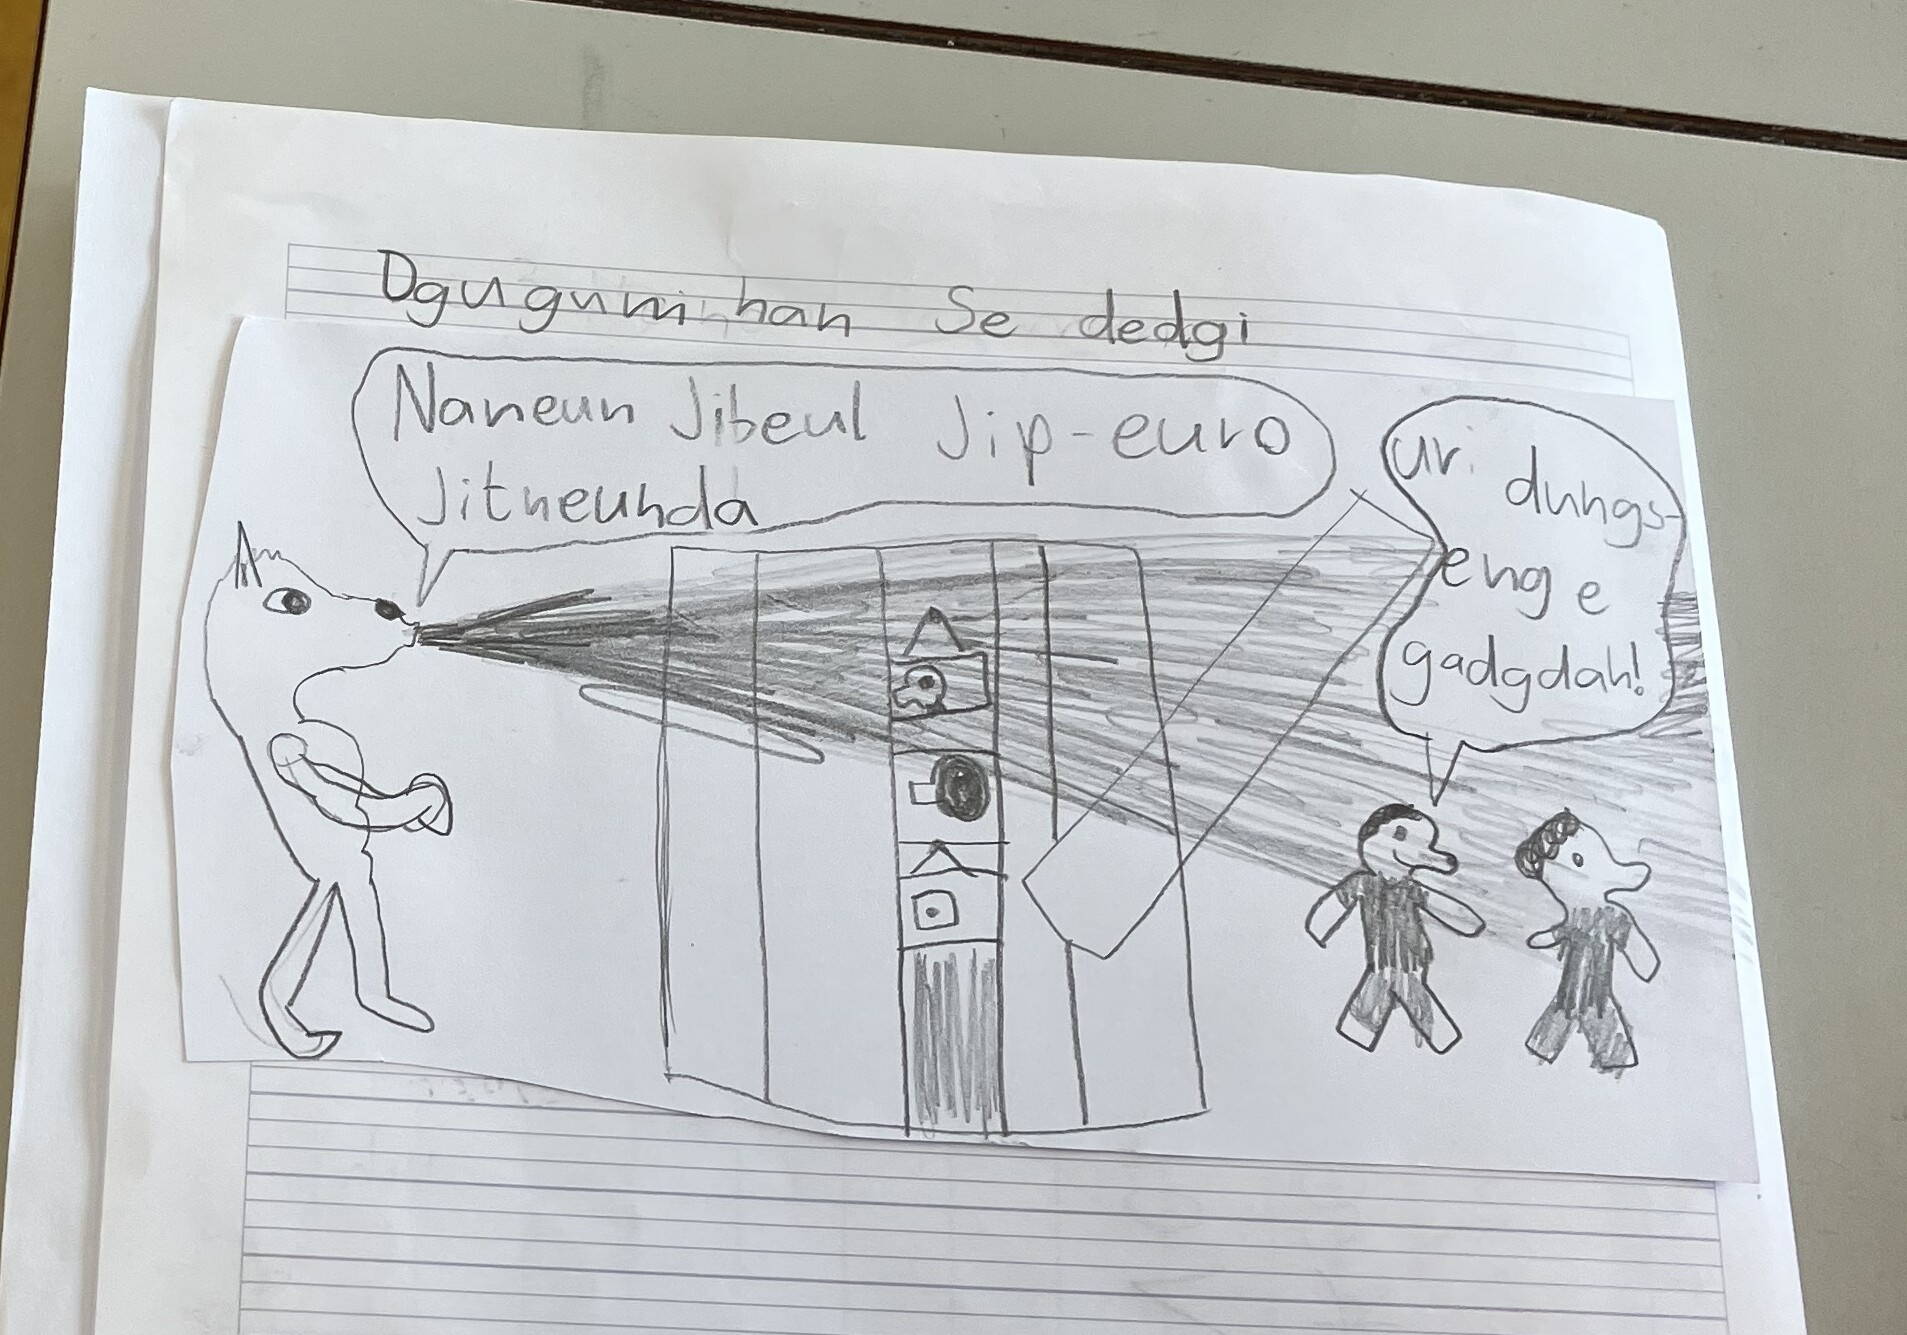 Dgugumihan Se dedgi
Naneun Jibeul Jip-euro
Jitneunda
uri dungs-
eng e
gadgdah!